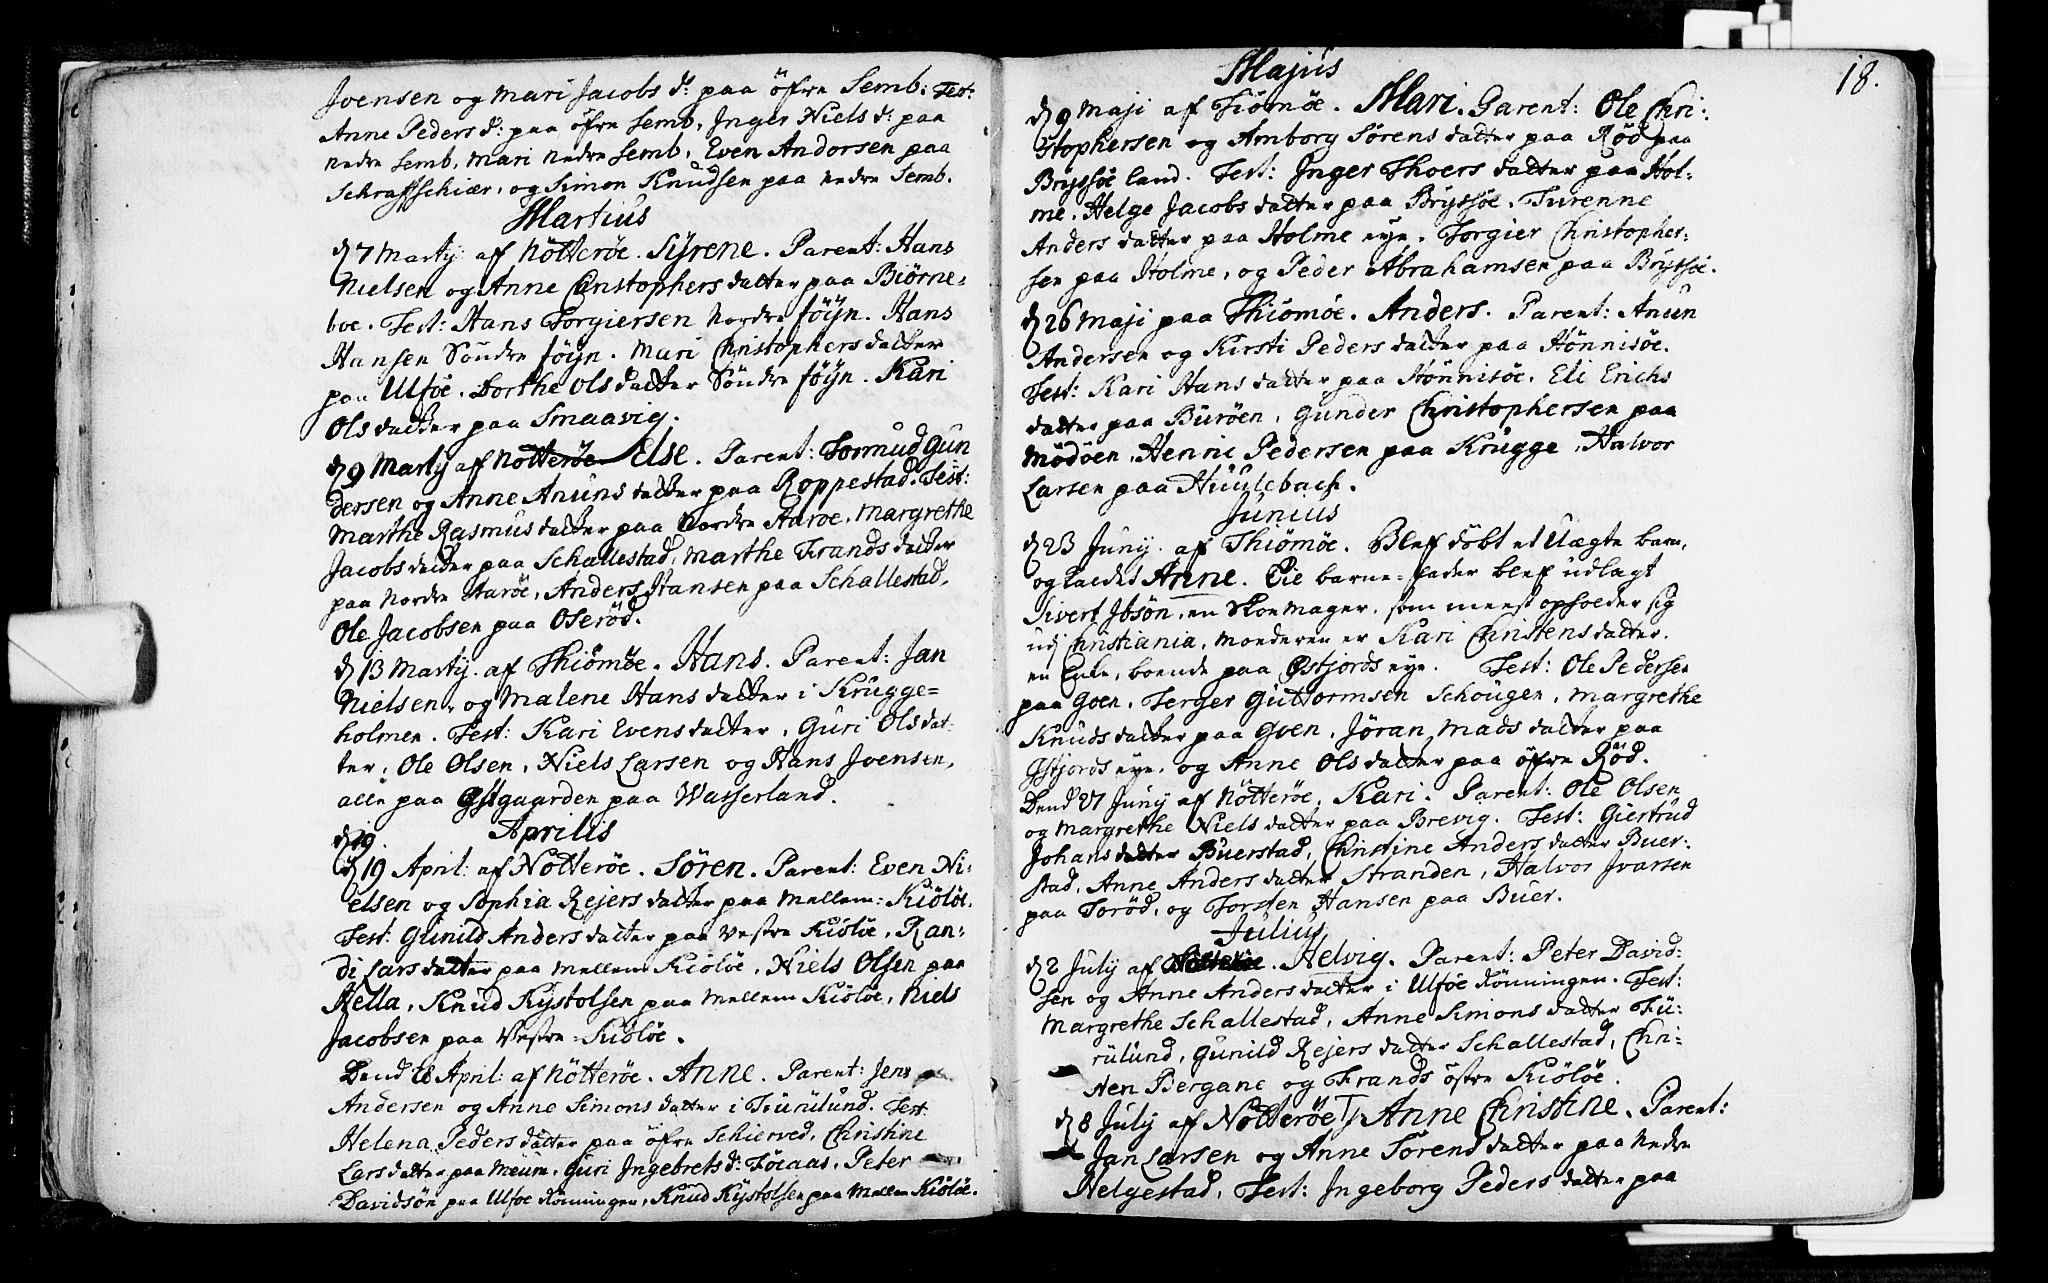 Joensen og Mari Jacobs d: paa öfre Semb: Test:
Anne Peders d: paa öfre Semb, Inger Niels d: paa
nedre Semb, Mari nedre Semb, Even Andersen paa
Schraffschiær, og Simon Knudsen paa nedre Semb.
Martius
d 7 Martij af Nötteröe. Syrene. Parent: Hans
Nielsen og Anne Christophers datter paa Biörne=
boe. Test: Hans Torgiersen Nordre föyn. Hans
Hansen Söndre föyn. Mari Christophers datter
paa Ulföe. Dorthe Ols datter Söndre föyn. Kari
Ols datter paa Smaavig.
d 9 Martij af Nötteröe Else. Parent: Tormud Gun
dersen og Anne Anuns datter paa Roppestad. Test:
Marthe Rasmus datter paa Nordre Aaröe, Margrethe
Jacobs datter paa Schallestad, Marthe Frands datter
paa Nordre Aaröe, Anders Hansen paa Schallestad,
Ole Jacobsen paa Oseröd.
d 13 Martij af Thiömöe. Hans. Parent: Jan
Nielsen, og Malene Hans datter i Krugge=
holmen. Test: Kari Evens datter, Guri Ols dat-
ter, Ole Olsen, Niels Larsen og Hans Joensen,
alle paa Østgaarden paa Wasserland.
Aprilis
d 19.
d 19 April: af Nötteröe. Sören. Parent: Even Ni-
elsen og Sophia Rejers datter paa Mellem=Kiölöe.
Test: Gunild Anders datter paa Vestre Kiölöe, Ran-
di Lars datter paa Mellem Kiölöe, Niels Olsen paa
Hella, Knud Kystolsen paa Mellem Kiölöe, Niels
Jacobsen paa Vestre=Kiölöe.
Dend 28 April: af Nötteröe. Anne. Parent: Jens
Andersen og Anne Simons datter i Furulund. Test:
Helena Peders datter paa öfre Schierved, Christine
Lars datter paa Meüm, Guri Ingebrets d: Föeaas, Peter
Davidsön paa Ulföe Rönningen, Knud Kystolsen paa Mellem Kiölöe.
18.
Majus
d 9 Maji af Tiömöe. Mari. Parent: Ole Chri:
stophersen og Amborg Sörens datter paa Röd paa
Bryssöe land. Test: Inger Thoers datter paa Hol-
me, Helge Jacobs datter paa Bryssöe, Turenne
Anders datter paa Holme eye, Torgier Christopher-
sen paa Holme, og Peder Abrahamsen paa Bryssöe.
d 26 Maji paa Thiömöe. Anders. Parent: Anun
Andersen og Kirsti Peders datter paa Hönnisöe.
Test: Kari Hans datter paa Hönnisöe, Eli Erichs
datter paa Buröen, Gunder Christophersen paa
Mödöen, Henric Pedersen paa Krugge, Halvor
Larsen paa Huulebach.
Junius
d 23 Junij af Thiömöe. Blef döbt et Uægte barn,
og kaldet Anne. Die barne=fader blef udlagt
Sivert Ibsön, en Skomager, som meest opholder sig
udj Christiania, moederen er Kari Christens datter,
en Enke, boende paa Østjords eye. Test: Ole Pedersen
paa Goen, Terger Guttormsen Schougen, Margrethe
Knuds datter paa Goen, Jöran Mads datter paa
Østjords eye, og Anne Ols datter paa öfre Röd.
Dend 27 Junij af Nötteröe, Kari. Parent: Ole Olsen
og Margrethe Niels datter paa Brevig. Test: Giertrud
Johans datter Buerstad, Christine Anders datter Buer-
stad, Anne Anders datter Stranden, Halvor Ivarsen
paa Toröd, og Torsten Hansen paa Buer.
Julius
d 2 July af Nötteröe. Helvig. Parent: Peter David:
sen og Anne Anders datter i Ulföe Rönningen. Test:
Margrethe Schallestad, Anne Simons datter Fu:
rulund, Gunild Rejers datter Schallestad, Chri-
sten Bergane og Frands östre Kiölöe.
d 8 July af Nötteröe Anne Christine. Parent:
Jan Larsen og Anne Sörens datter paa Nedre
Helgestad, Test: Ingeborg Peders datter paa